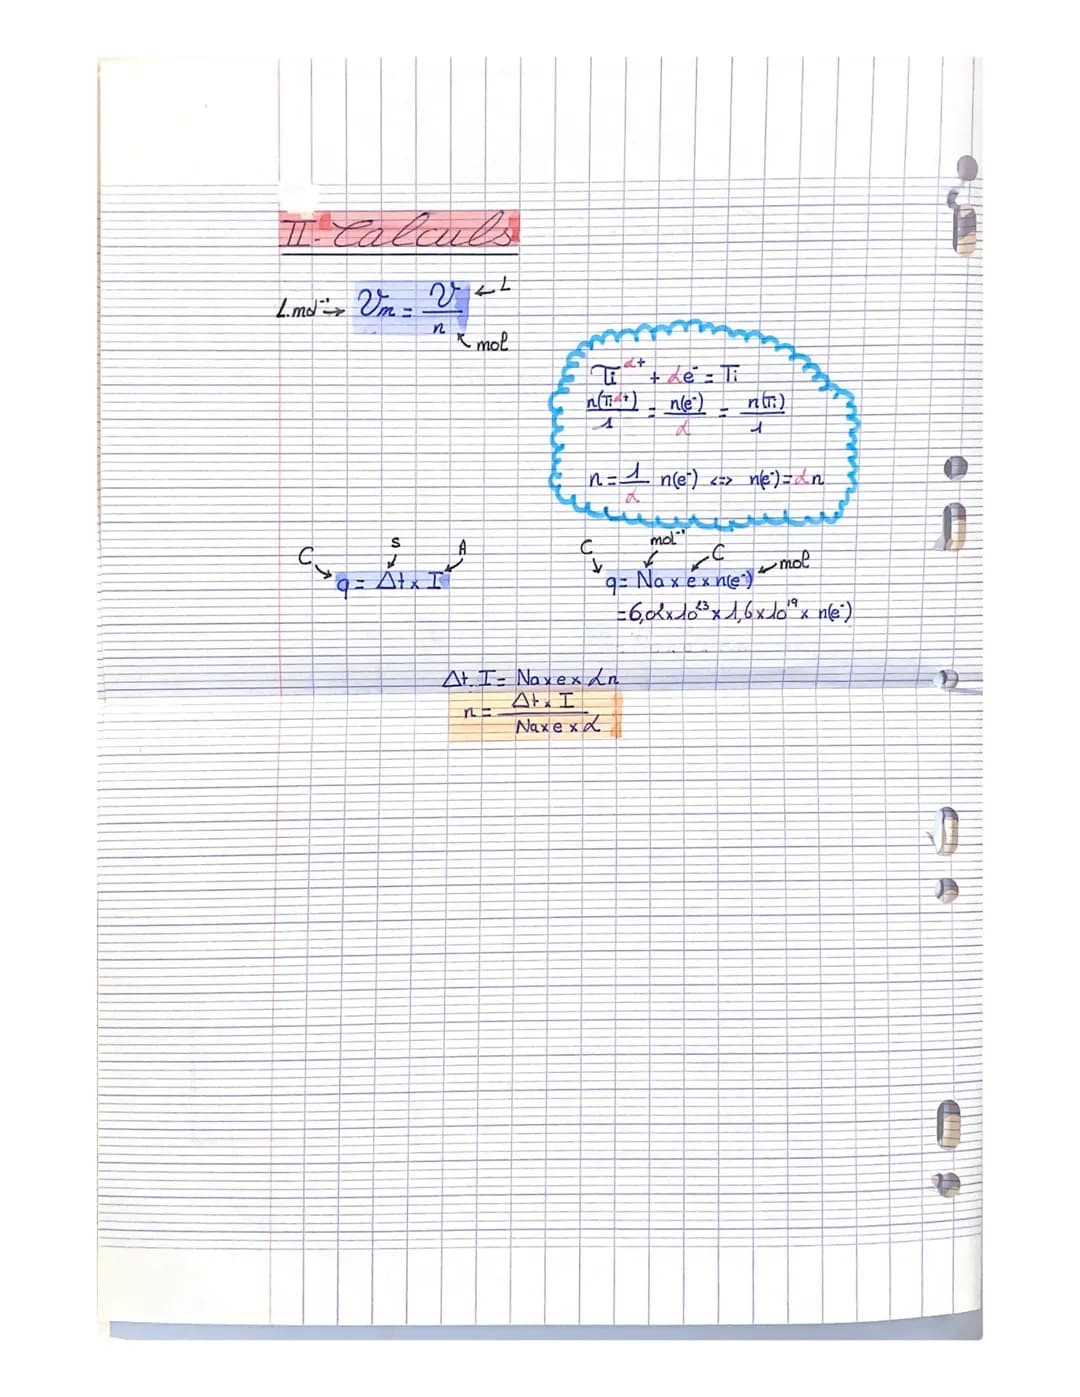 II - Calculs
L.mol⁻¹ → Vm = V/n ← L
mol
Ti²⁺ + 2e⁻ = Ti
n(Ti²⁺)/1 = n(e⁻)/2 = n(Ti)/1
n = 1/2 n(e⁻) <=> n(e⁻) = 2n
C s A
q = Δt x I
C mol⁻¹ C mol
q = Na x e x n(e⁻)
= 6,02x10²³ x 1,6x10⁻¹⁹ x n(e⁻)
Δt. I = Na x e x 2n
n = Δt x I / Na x e x 2